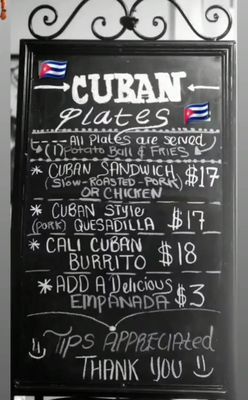 CUBAN
Plates
All Plates are Served
(1) Potato Ball & FRIES
* CUBAN SANDWICH
(SLOW-ROASTED-PORK) $17
OR CHICKEN
* CUBAN Style
(PORK) QUESADILLA $17
* CALI CUBAN
BURRITO $18
* ADD A Delicious
EMPANADA $3
TIPS APPRECIATED
THANK YOU